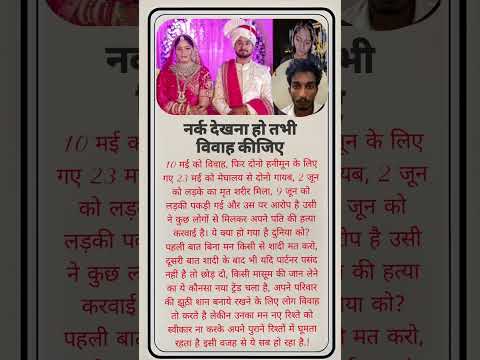 नर्क देखना हो तभी
विवाह कीजिए
10 मई को विवाह, फिर दोनो हनीमून के लिए
गए 23 मई को मेघालय से दोनो गायब, 2 जून
को लड़के का मृत शरीर मिला, 9 जून को
लड़की पकड़ी गई और उस पर आरोप है उसी
ने कुछ लोगों से मिलकर अपने पति की हत्या
करवाई है। ये क्या हो गया है दुनिया को?
पहली बात बिना मन किसी से शादी मत करो,
दूसरी बात शादी के बाद भी यदि पार्टनर पसंद
नही है तो छोड़ दो, किसी मासूम की जान लेने
का ये कौनसा नया ट्रेंड चला है, अपने परिवार
की झूठी शान बनाये रखने के लिए लोग विवाह
तो करते है लेकीन उनका मन नए रिश्ते को
स्वीकार ना करके अपने पुराने रिश्तों में घूमता
रहता है इसी वजह से ये सब हो रहा है.!